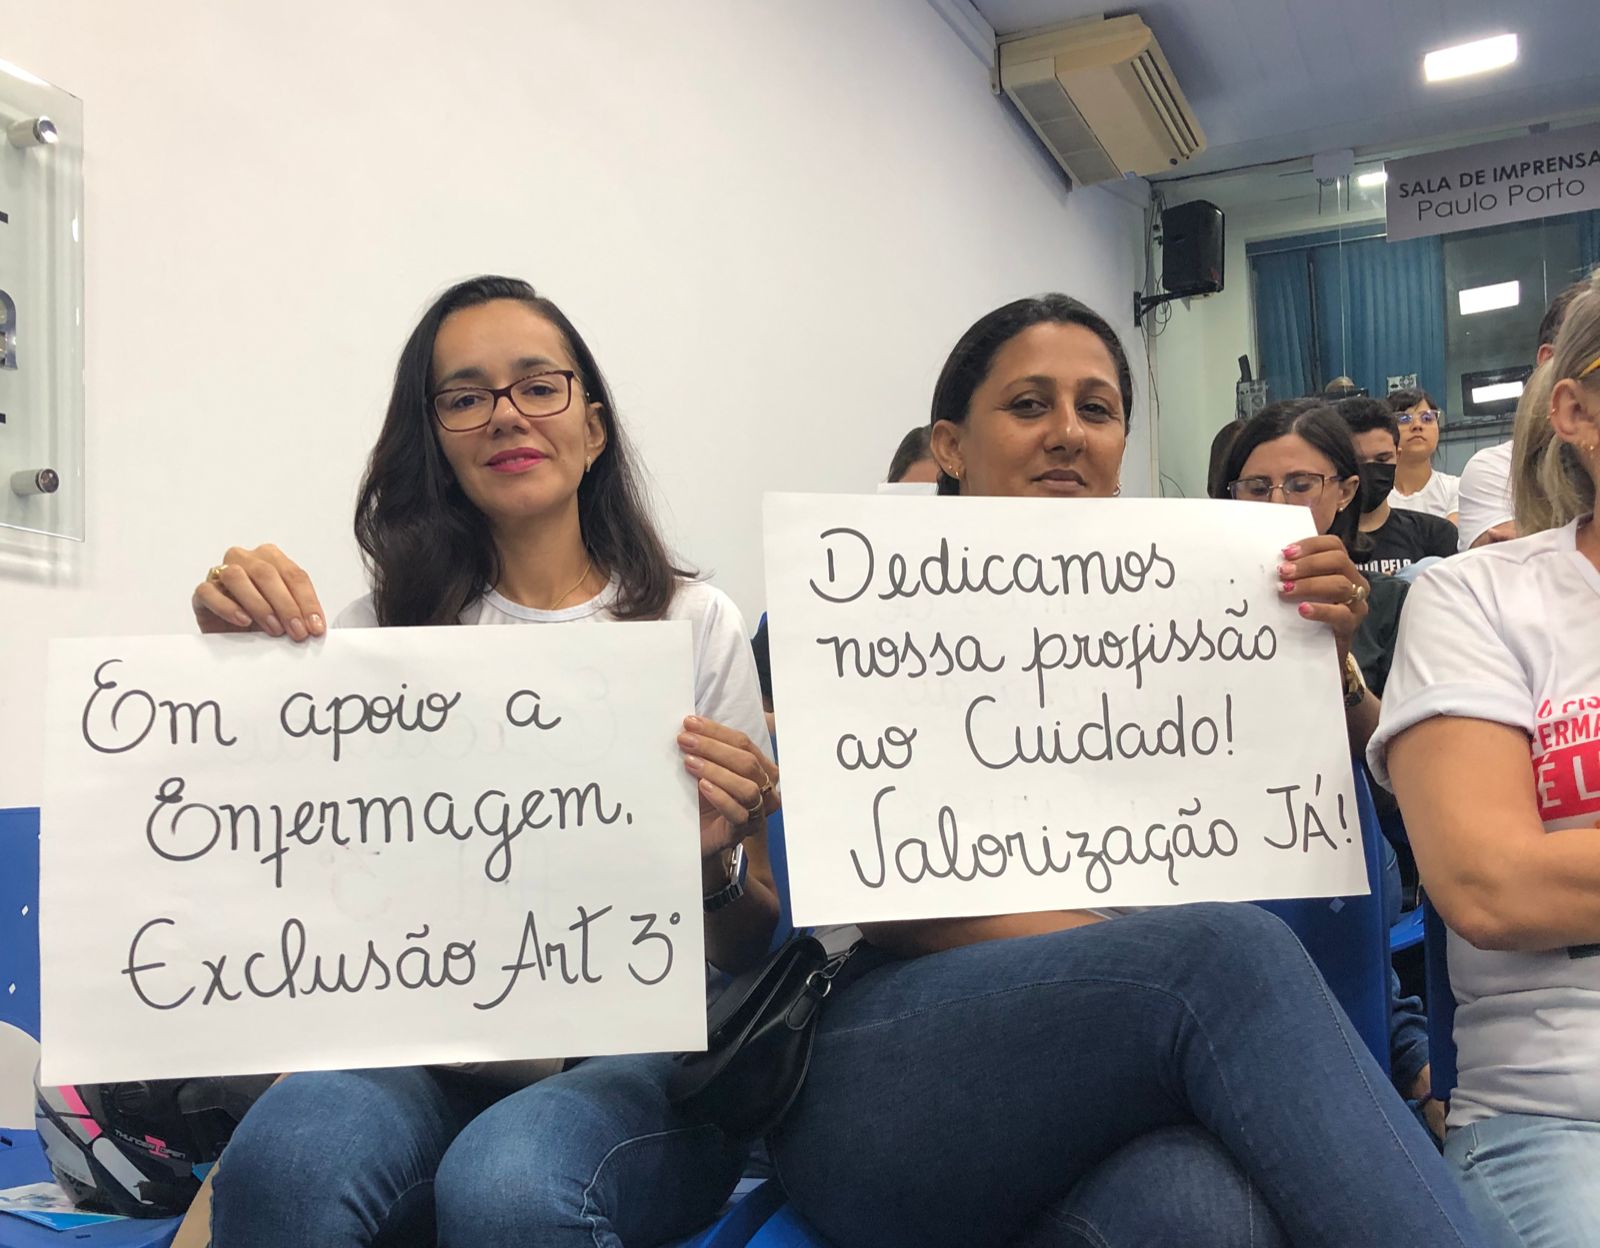 SALA DE IMPRENSA
Paulo Porto
Em apoio a
Enfermagem.
Exclusão Art 3º
Dedicamos
nossa profissão
ao Cuidado!
Valorização JÁ!
THUNDER OPEN
É L